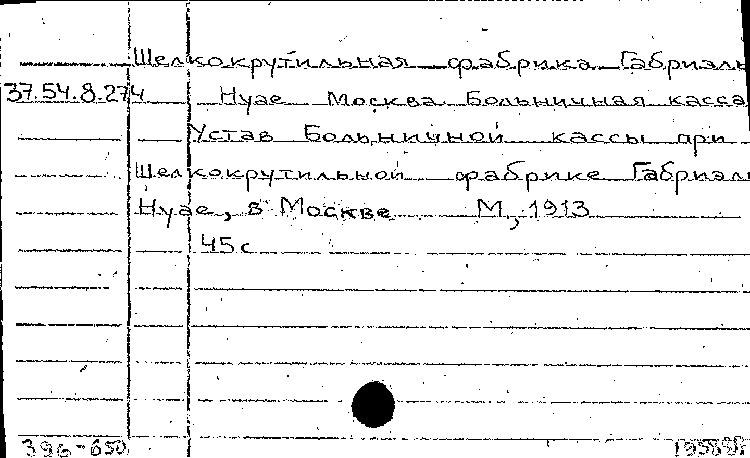 Шелкокрутильная фабрика Габриэль
37.54.8.274 Нуае Москва Больничная касса
Устав Больничной кассы при
Шелкокрутильной фабрике Габриэль
Нуае, в Москве М, 1913
45 с
396-650